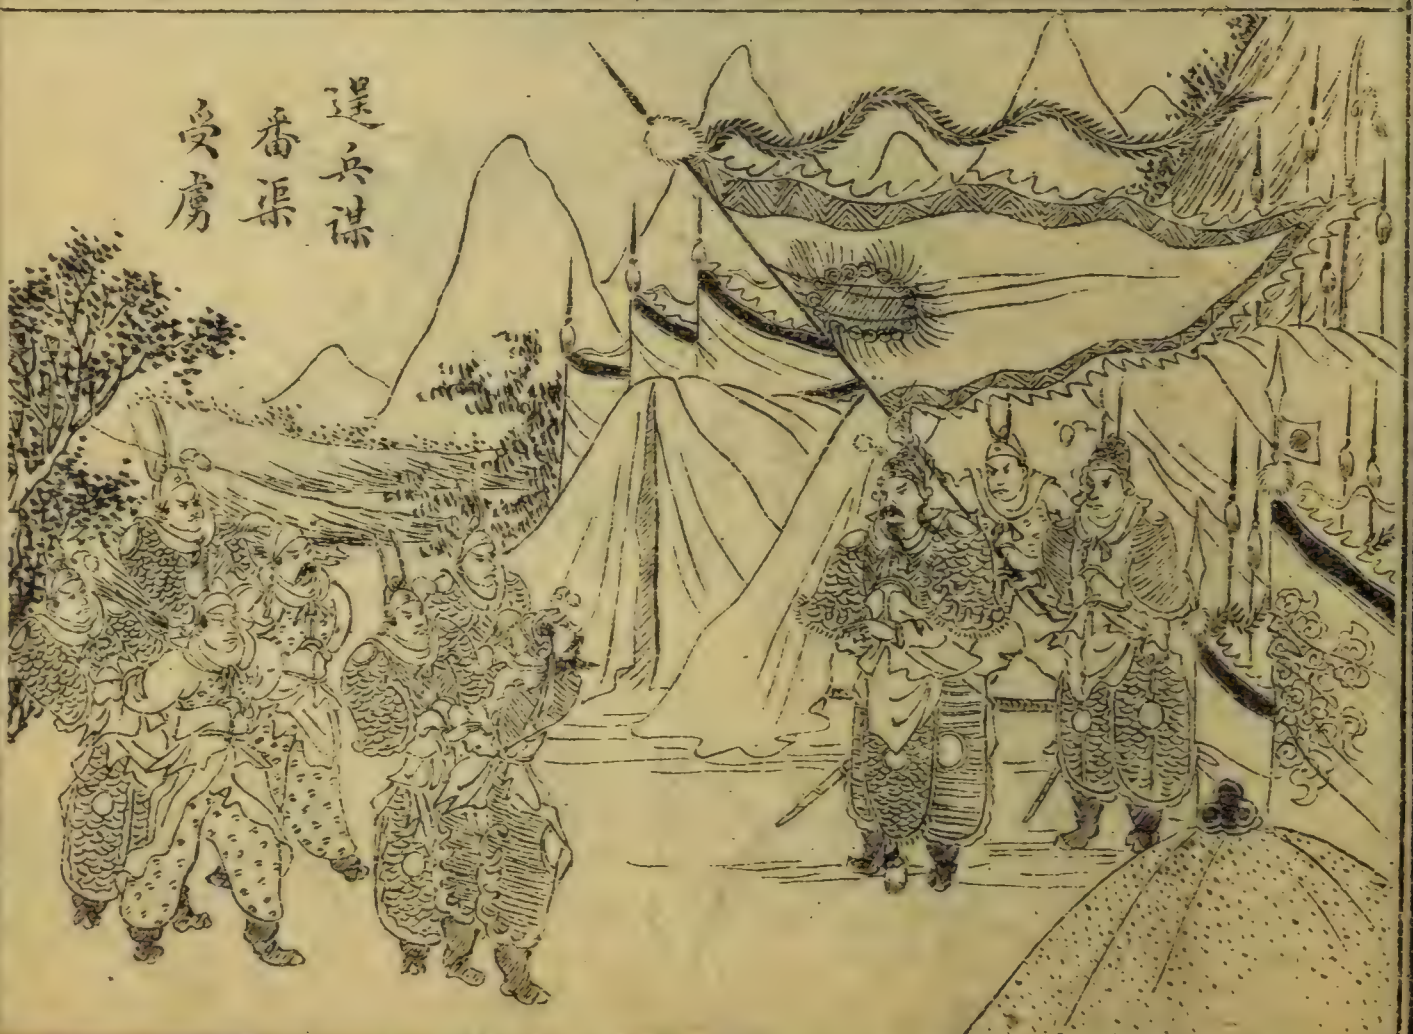 逞兵謀
番渠
受虜